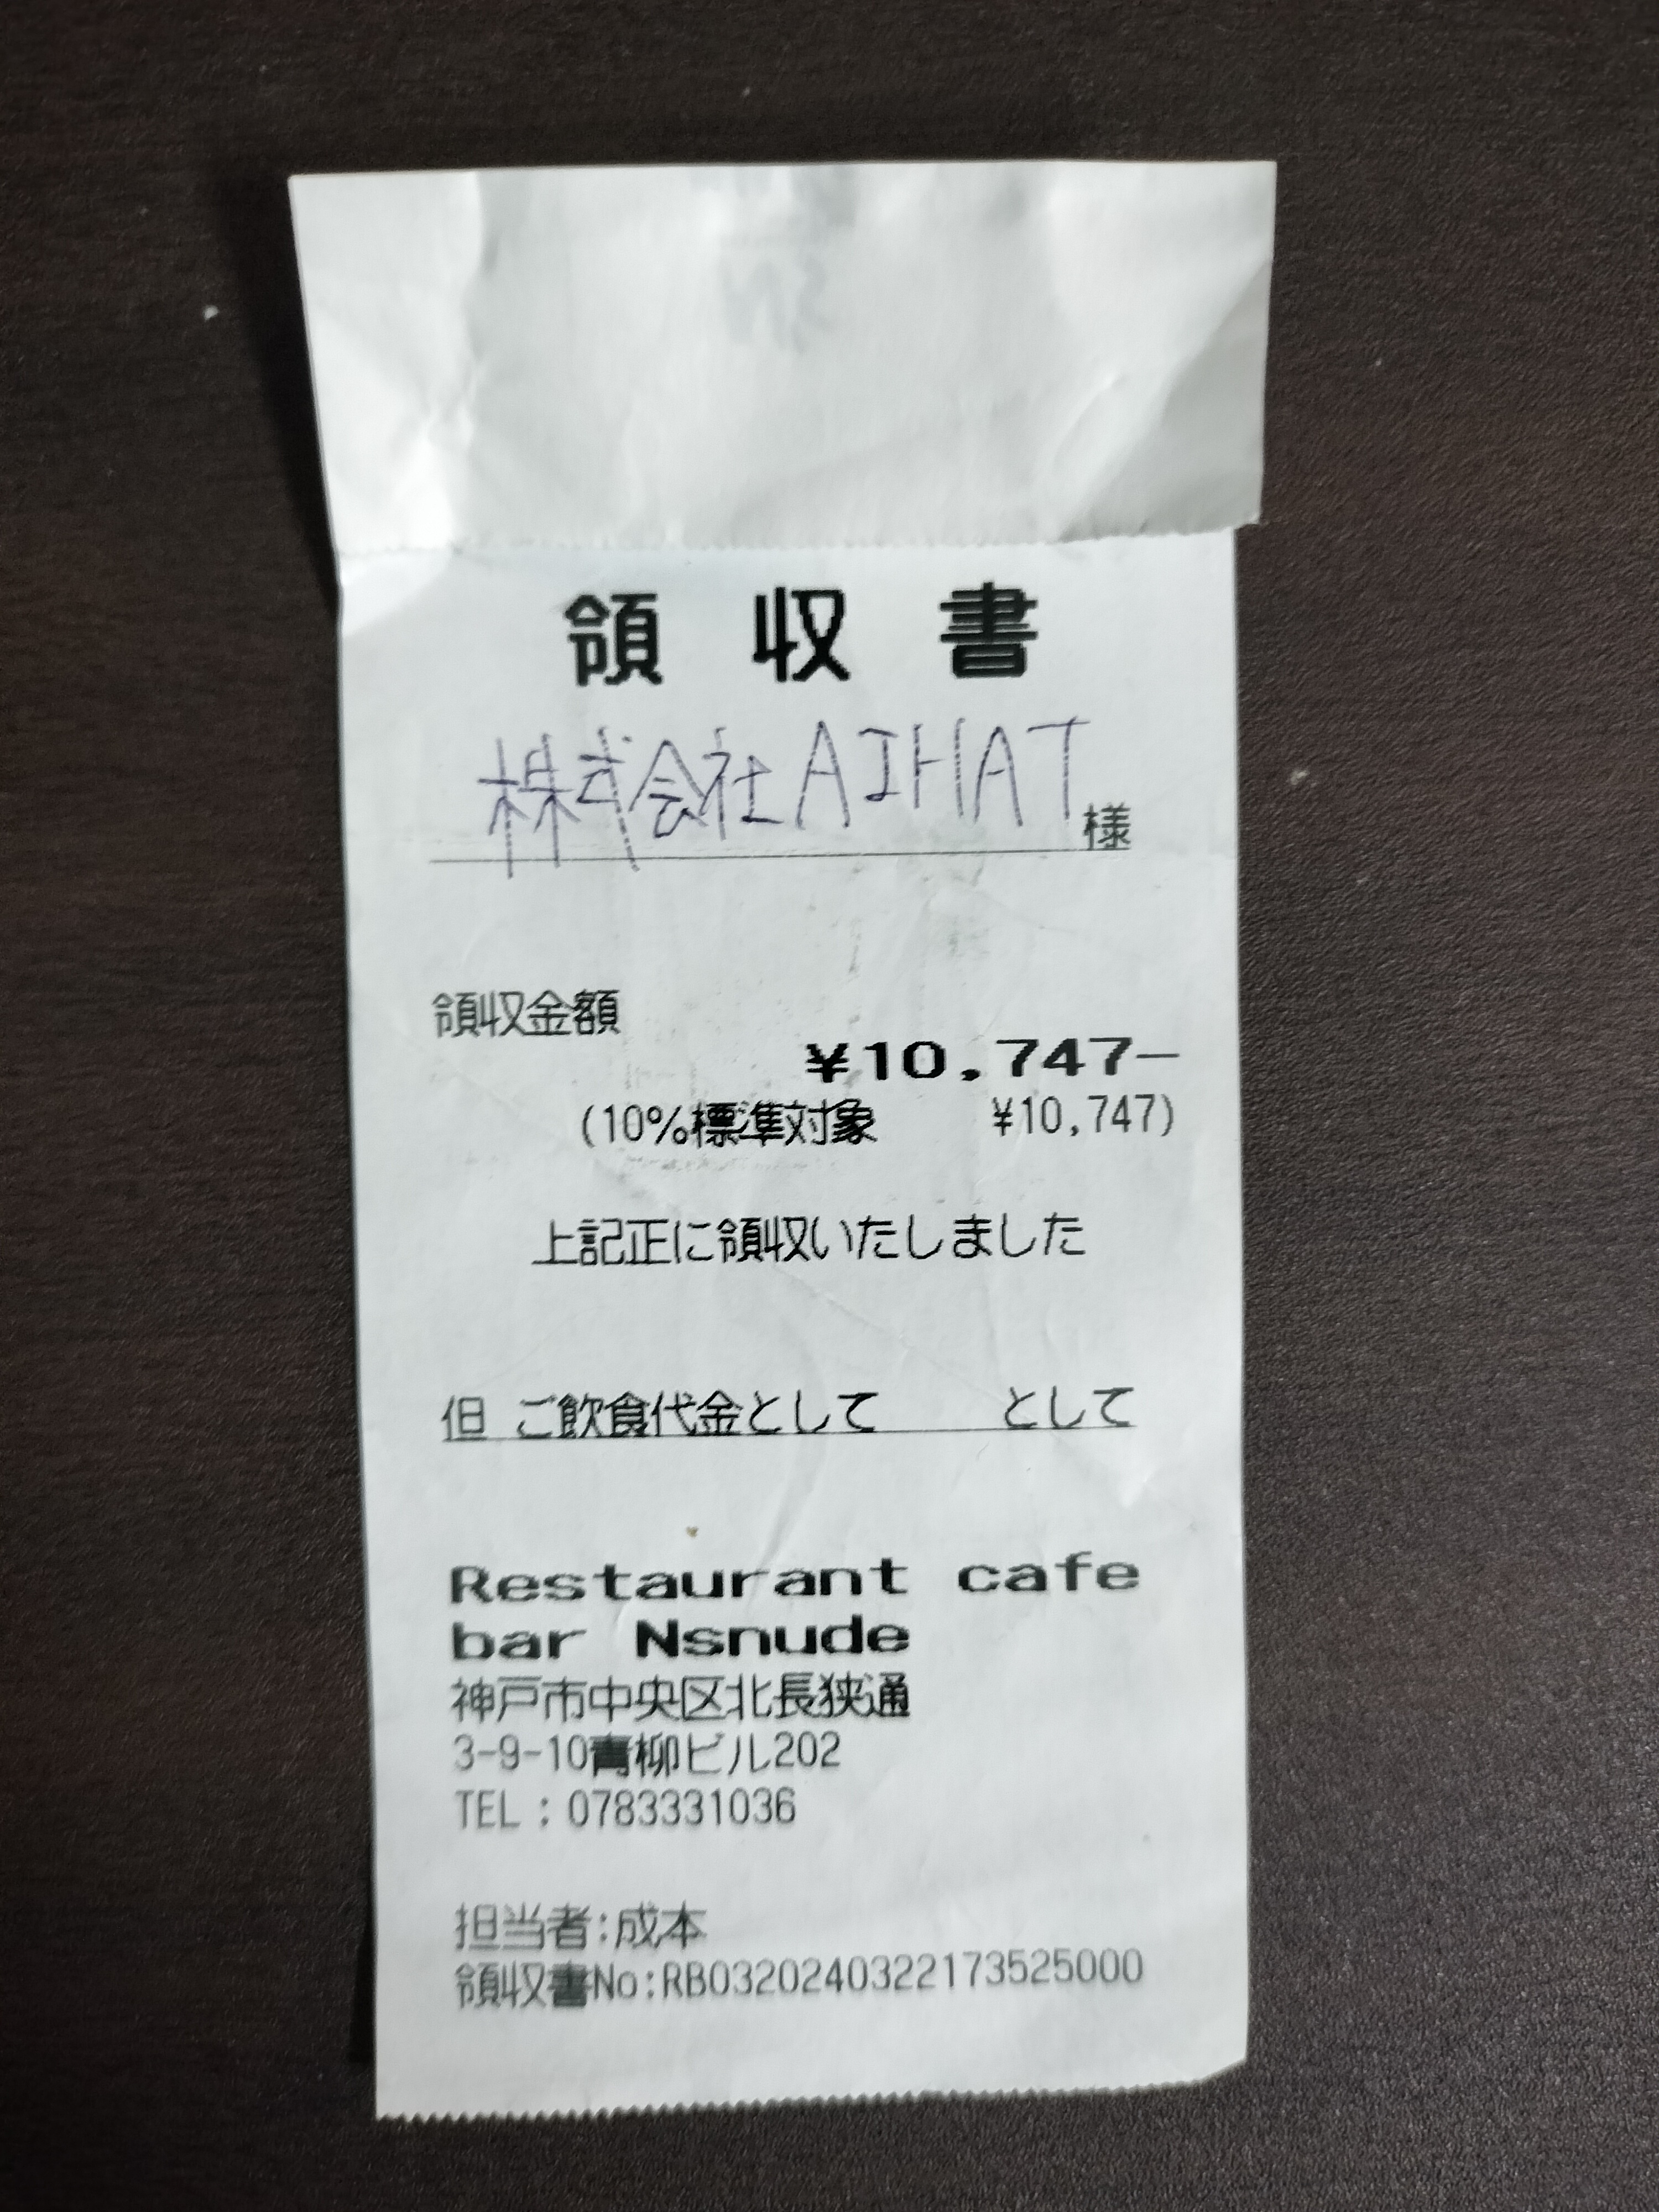 領 収 書
株式会社AIHAT様
領収金額
¥10,747−
(10%標準対象 ¥10,747)
上記正に領収いたしました
但 ご飲食代金として として
Restaurant cafe
bar Nsnude
神戸市中央区北長狭通
3-9-10青柳ビル202
TEL：0783331036
担当者:成本
領収書No:RB0320240322173525000